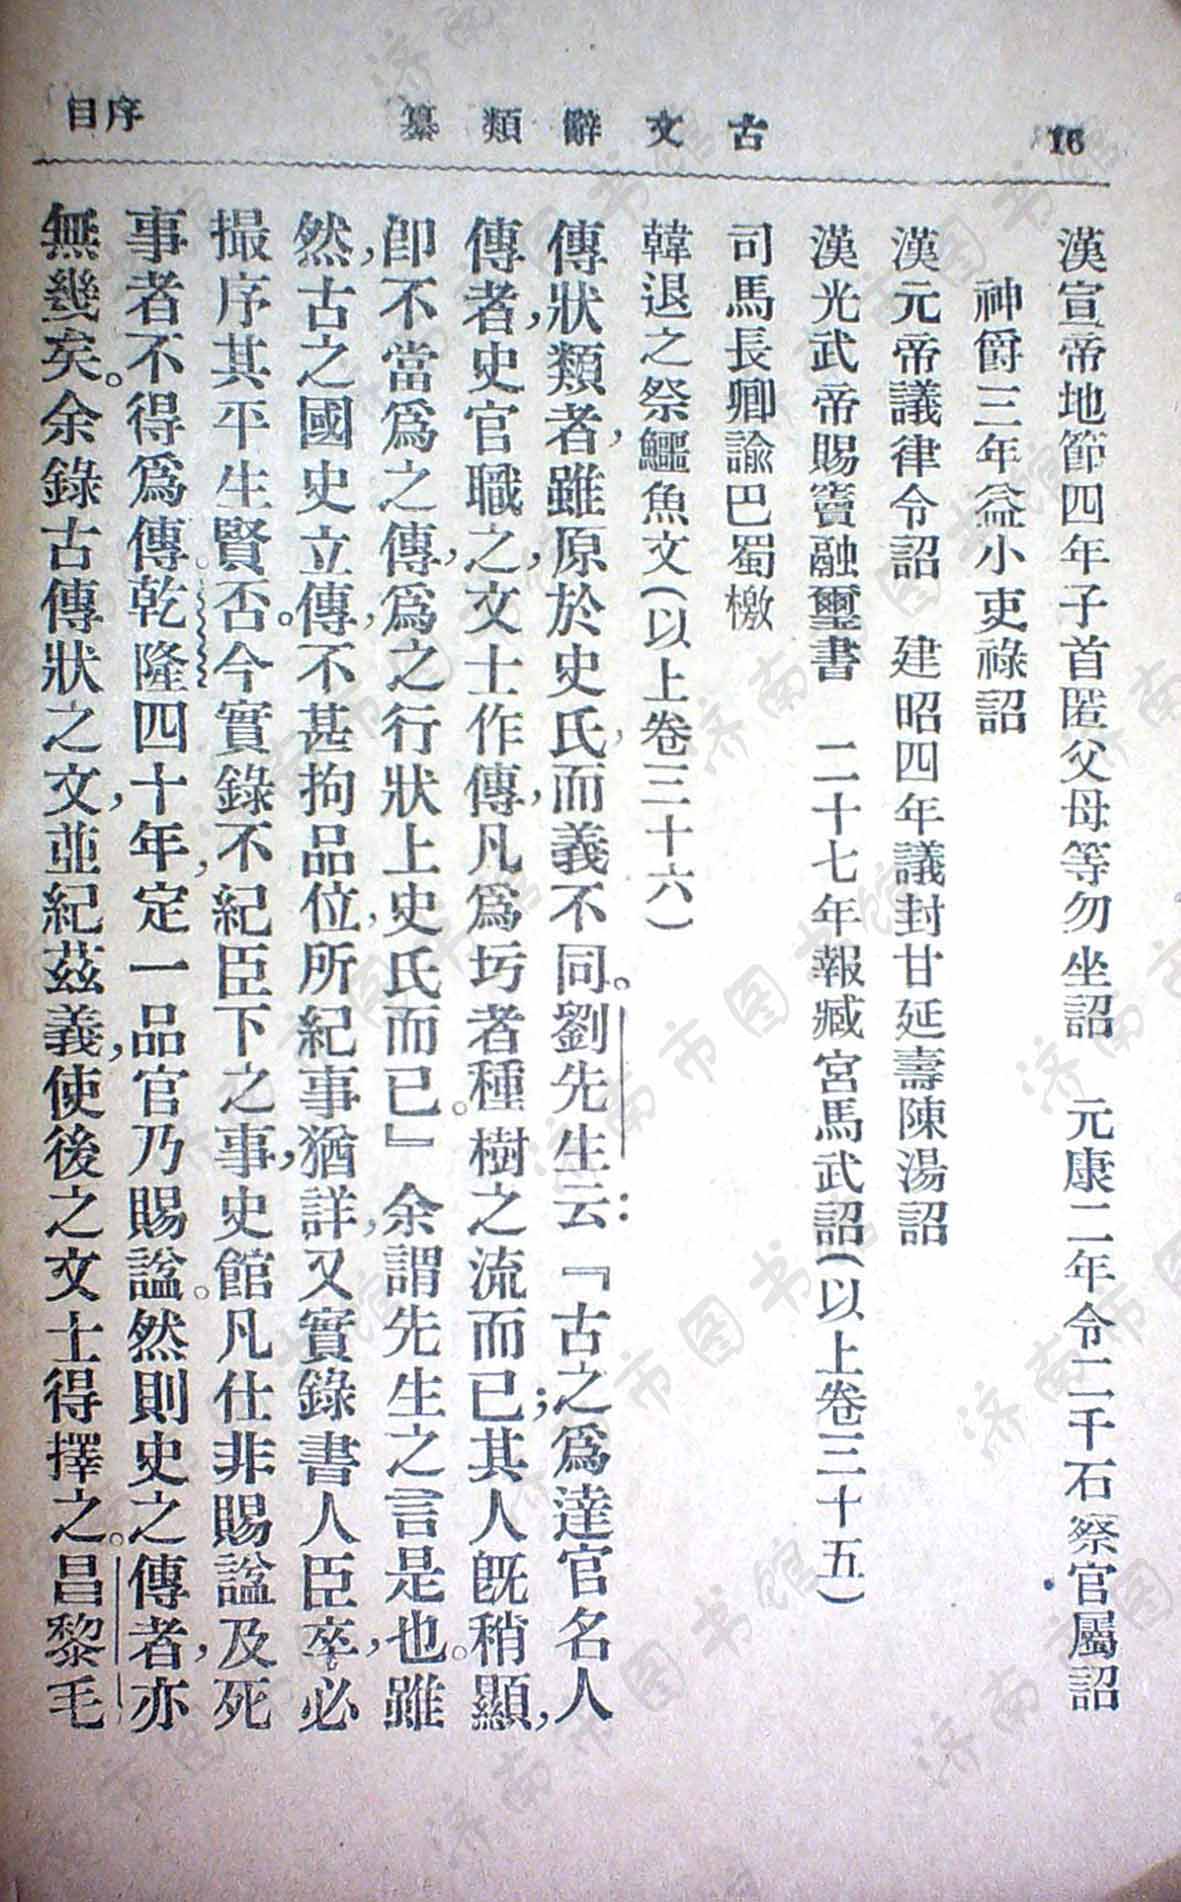 16
古文辭類纂
序目
漢宣帝地節四年子首匿父母等勿坐詔　元康二年令二千石察官屬詔
神爵三年益小吏祿詔
漢元帝議律令詔　建昭四年議封甘延壽陳湯詔
漢光武帝賜竇融璽書　二十七年報臧宮馬武詔(以上卷三十五)
司馬長卿諭巴蜀檄
韓退之祭鱷魚文(以上卷三十六)
傳狀類者，雖原於史氏，而義不同。劉先生云：『古之爲達官名人
傳者，史官職之，文士作傳，凡爲圬者種樹之流而已；其人旣稍顯，
卽不當爲之傳，爲之行狀，上史氏而已。』余謂先生之言是也。雖
然，古之國史立傳，不甚拘品位，所紀事猶詳，又實錄書人臣卒，必
撮序其平生賢否。今實錄不紀臣下之事，史館凡仕非賜諡及死
事者，不得爲傳。乾隆四十年，定一品官乃賜諡。然則史之傳者，亦
無幾矣。余錄古傳狀之文，並紀茲義，使後之文士得擇之。昌黎毛
济南市图书馆